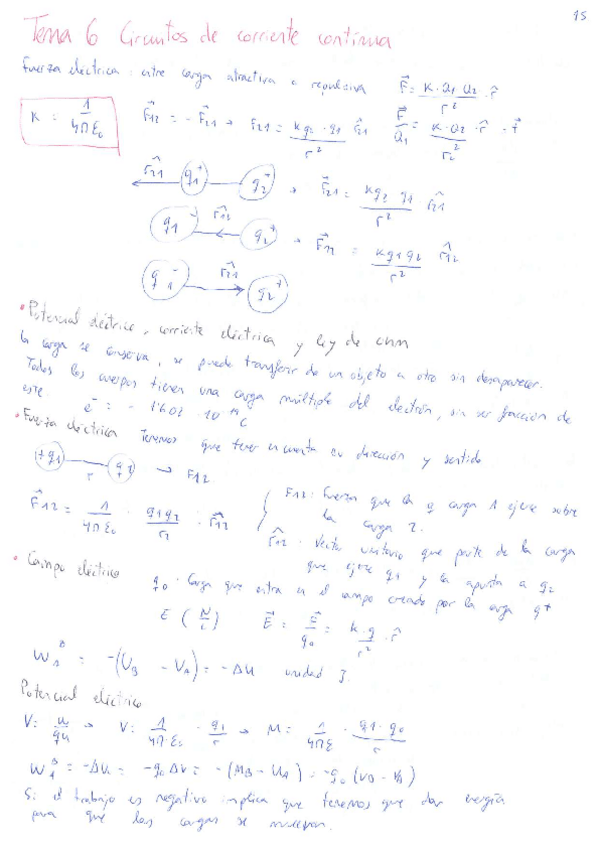 15
Tema 6 Circuitos de corriente continua
Fuerza eléctrica: entre carga atractiva o repulsiva F⃗ = K·Q1·Q2/r² · r̂
K = 1/4πε₀
F⃗12 = -F⃗21 → F21 = kq2·q1/r² r̂21 F⃗/Q1 = K·Q2/r² · r̂
r̂21 q1⁺ q2⁺ → F⃗21 = kq2 q1/r² r̂21
q1⁻ r̂12 q2⁺ → F⃗12 = kq1q2/r² r̂12
q1⁻ r̂21 q2⁺
• Potencial eléctrico, corriente eléctrica y ley de ohm
la carga se conserva, se puede transferir de un objeto a otro sin desaparecer.
Todos los cuerpos tienen una carga múltiple del electrón, sin ser fracción de
este. e⁻ = -1'602·10⁻¹⁹ C
• Fuerza eléctrica Tenemos que tener en cuenta su dirección y sentido
+q1 r q2 → F12
F⃗12 = 1/4πε₀ · q1q2/r2 · r̂12
F12: Fuerza que la q carga 1 ejerce sobre
la carga 2.
r̂12: Vector unitario que parte de la carga
que ejerce q1 y la apunta a q2
• Campo eléctrico q0: Carga que entra en el campo creado por la carga q⁺
E (N/C) E⃗ = F⃗/q0 = k·q/r² · r̂
W_A^B = -(U_B - U_A) = -ΔU unidad J.
Potencial eléctrico
V = u/q → V = 1/4πε₀ · q1/r → M = 1/4πε · q1·q0/r
W_A^B = -ΔU = -q0 ΔV = -(M_B - U_A) = -q0 (V_B - V_A)
Si el trabajo es negativo implica que tenemos que dar energía
para que las cargas se muevan.